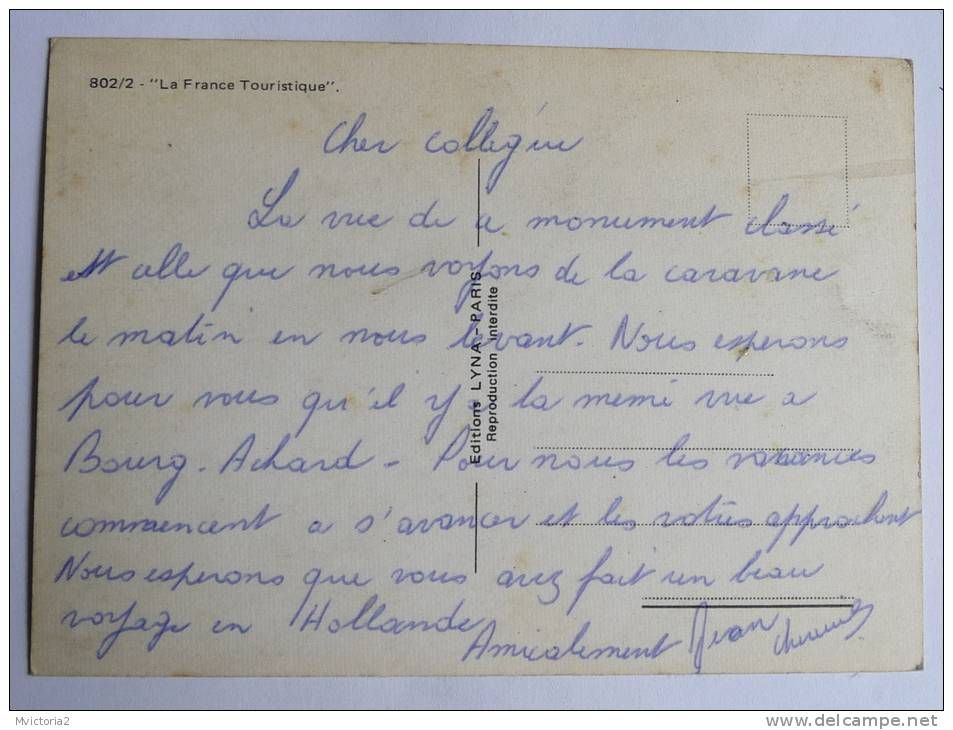 802/2 - "La France Touristique".
Cher collègue
La vue de a monument classé
est celle que nous voyons de la caravane
le matin en nous levant. Nous esperons
pour vous qu'il y a la memé vue a
Bourg-Achard - Pour nous les vacances
commencent a s'avancer et les votres approchent
Nous esperons que vous avez fait un beau
voyage en Hollande
Amicalement Jean
Editions LYNA - PARIS
Reproduction interdite
Mvictoria2
www.delcampe.net